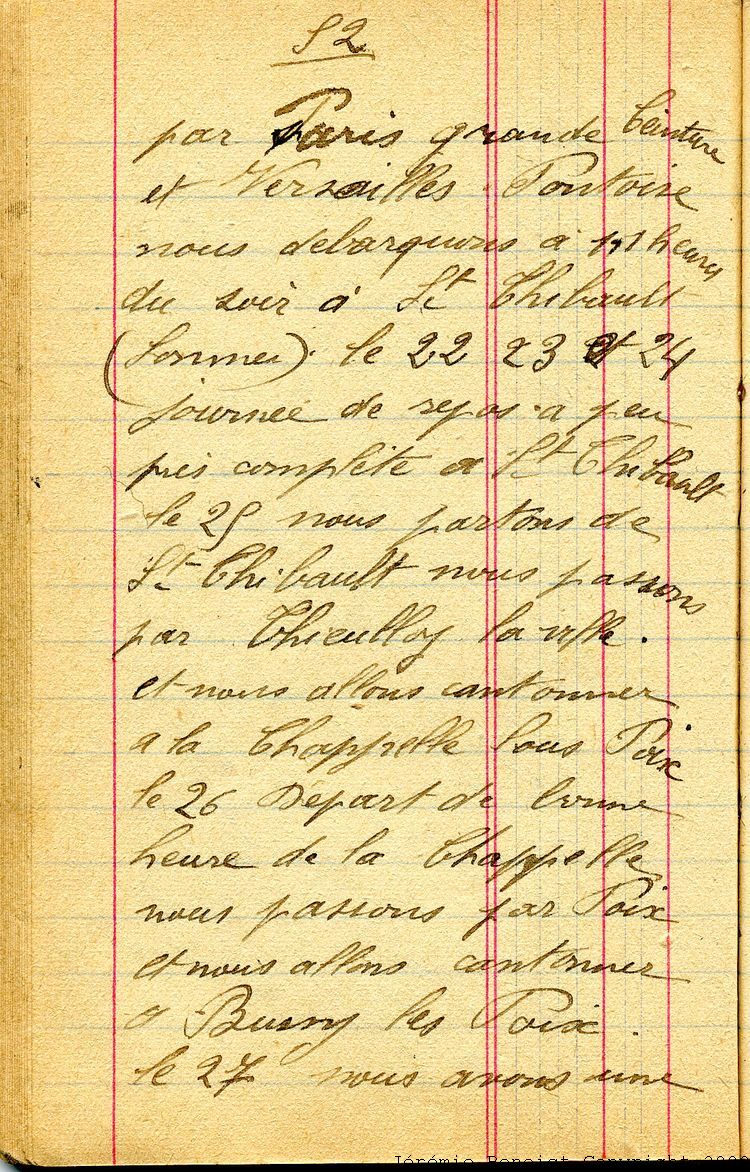 52
par Paris grande Ceinture
et Versailles. Pontoise
nous debarquons à heures
du soir à St Thibault
(Somme). le 22 23 et 24
journée de repos a peu
près complète a St Thibault
le 25 nous partons de
St Thibault nous passons
par Thieulloy la ville.
et nous allons cantonner
a la Chappelle sous Poix
le 26 Depart de bonne
heure de la Chappelle
nous passons par Poix
et nous allons cantonner
a Bussy les Poix.
le 27 nous avons une
Jérémie Benoist Copyright